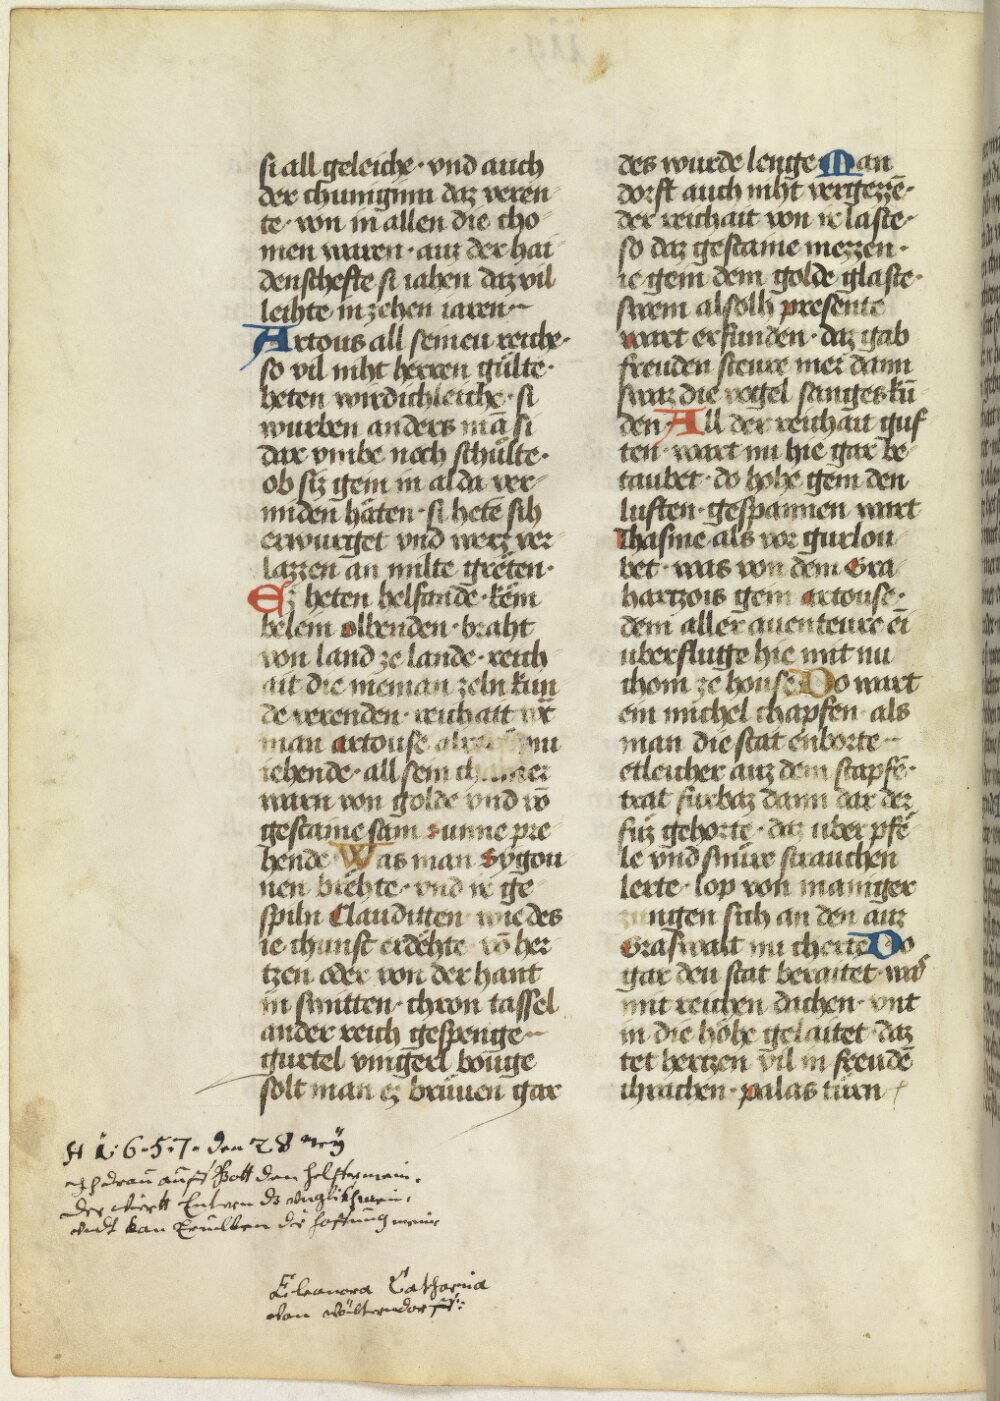 si all geleiche · vnd auch
der chuniginn daz veren
te · von in allen die cho
men waren · auz der hai
denschefte si iahen daz vil
leihte in zehen iaren ·
Artous all seineu reiche ·
so vil niht herren gůlte ·
heten wirdichleiche · si
wurben anders mā si
dar vmbe noch schůlte ·
ob siz gern in alda ver
miden hăten · si hetē sih
erwurget vnd werz ver
lazzen an milte grĕten ·
Ez heten helfande · kēm
belem olbenden · braht
von land ze lande · reich
ait die nieman zeln kun
de verenden · reichait
man artouse
iehende · all sein
warn von golde vnd vō
gestaine sam sunne pre
hende · Was man Sygou
nen brĕhte · vnd ir ge
spiln Clauditten wie des
ie chunst erdĕhte vō her
tzen oder von der hant
in snitten · chron tassel
ander reich gespenge ·
gurtel vingerl bouge
solt man ez brůuen gar
des wurde lenge Man
dorft auch niht vergezzē ·
der reichait von ir laste ·
so daz gestaine mezzen ·
ie gein dem golde glaste ·
swem alsolh presente
wart erfunden · daz gab
freuden steure mer dann
swaz die vogel sanges kū
den · All der reichait guf
ten · wart nu hie gar be
taubet · do hohe gein den
luften · gespannen wart
Thasme als vor gurlou
bet · was von dem Gra
hartzois gein artouse ·
dem aller auenteure ei
uberfluge hie mit nu
chom ze house Do wart
ein michel chapfen als
man die stat enborte ·
etleicher auz dem stapfē ·
trat furbaz dann dar der
fůz gehorte · daz uber pfē
le vnd snůre strauchen
lerte · lop von maniger
zungen sich an den auz
Graswalt nu cherte Do
gar deu stat beraitet was
mit reichen dachen · vnt
in die hŏhe gelaitet daz
tet hertzen vil in freudē
chrachen · palas turn
A 1·6·5·7· den 28
auff Gott den
der
vndt kan die hoffnung
Eleanora Catharina
von